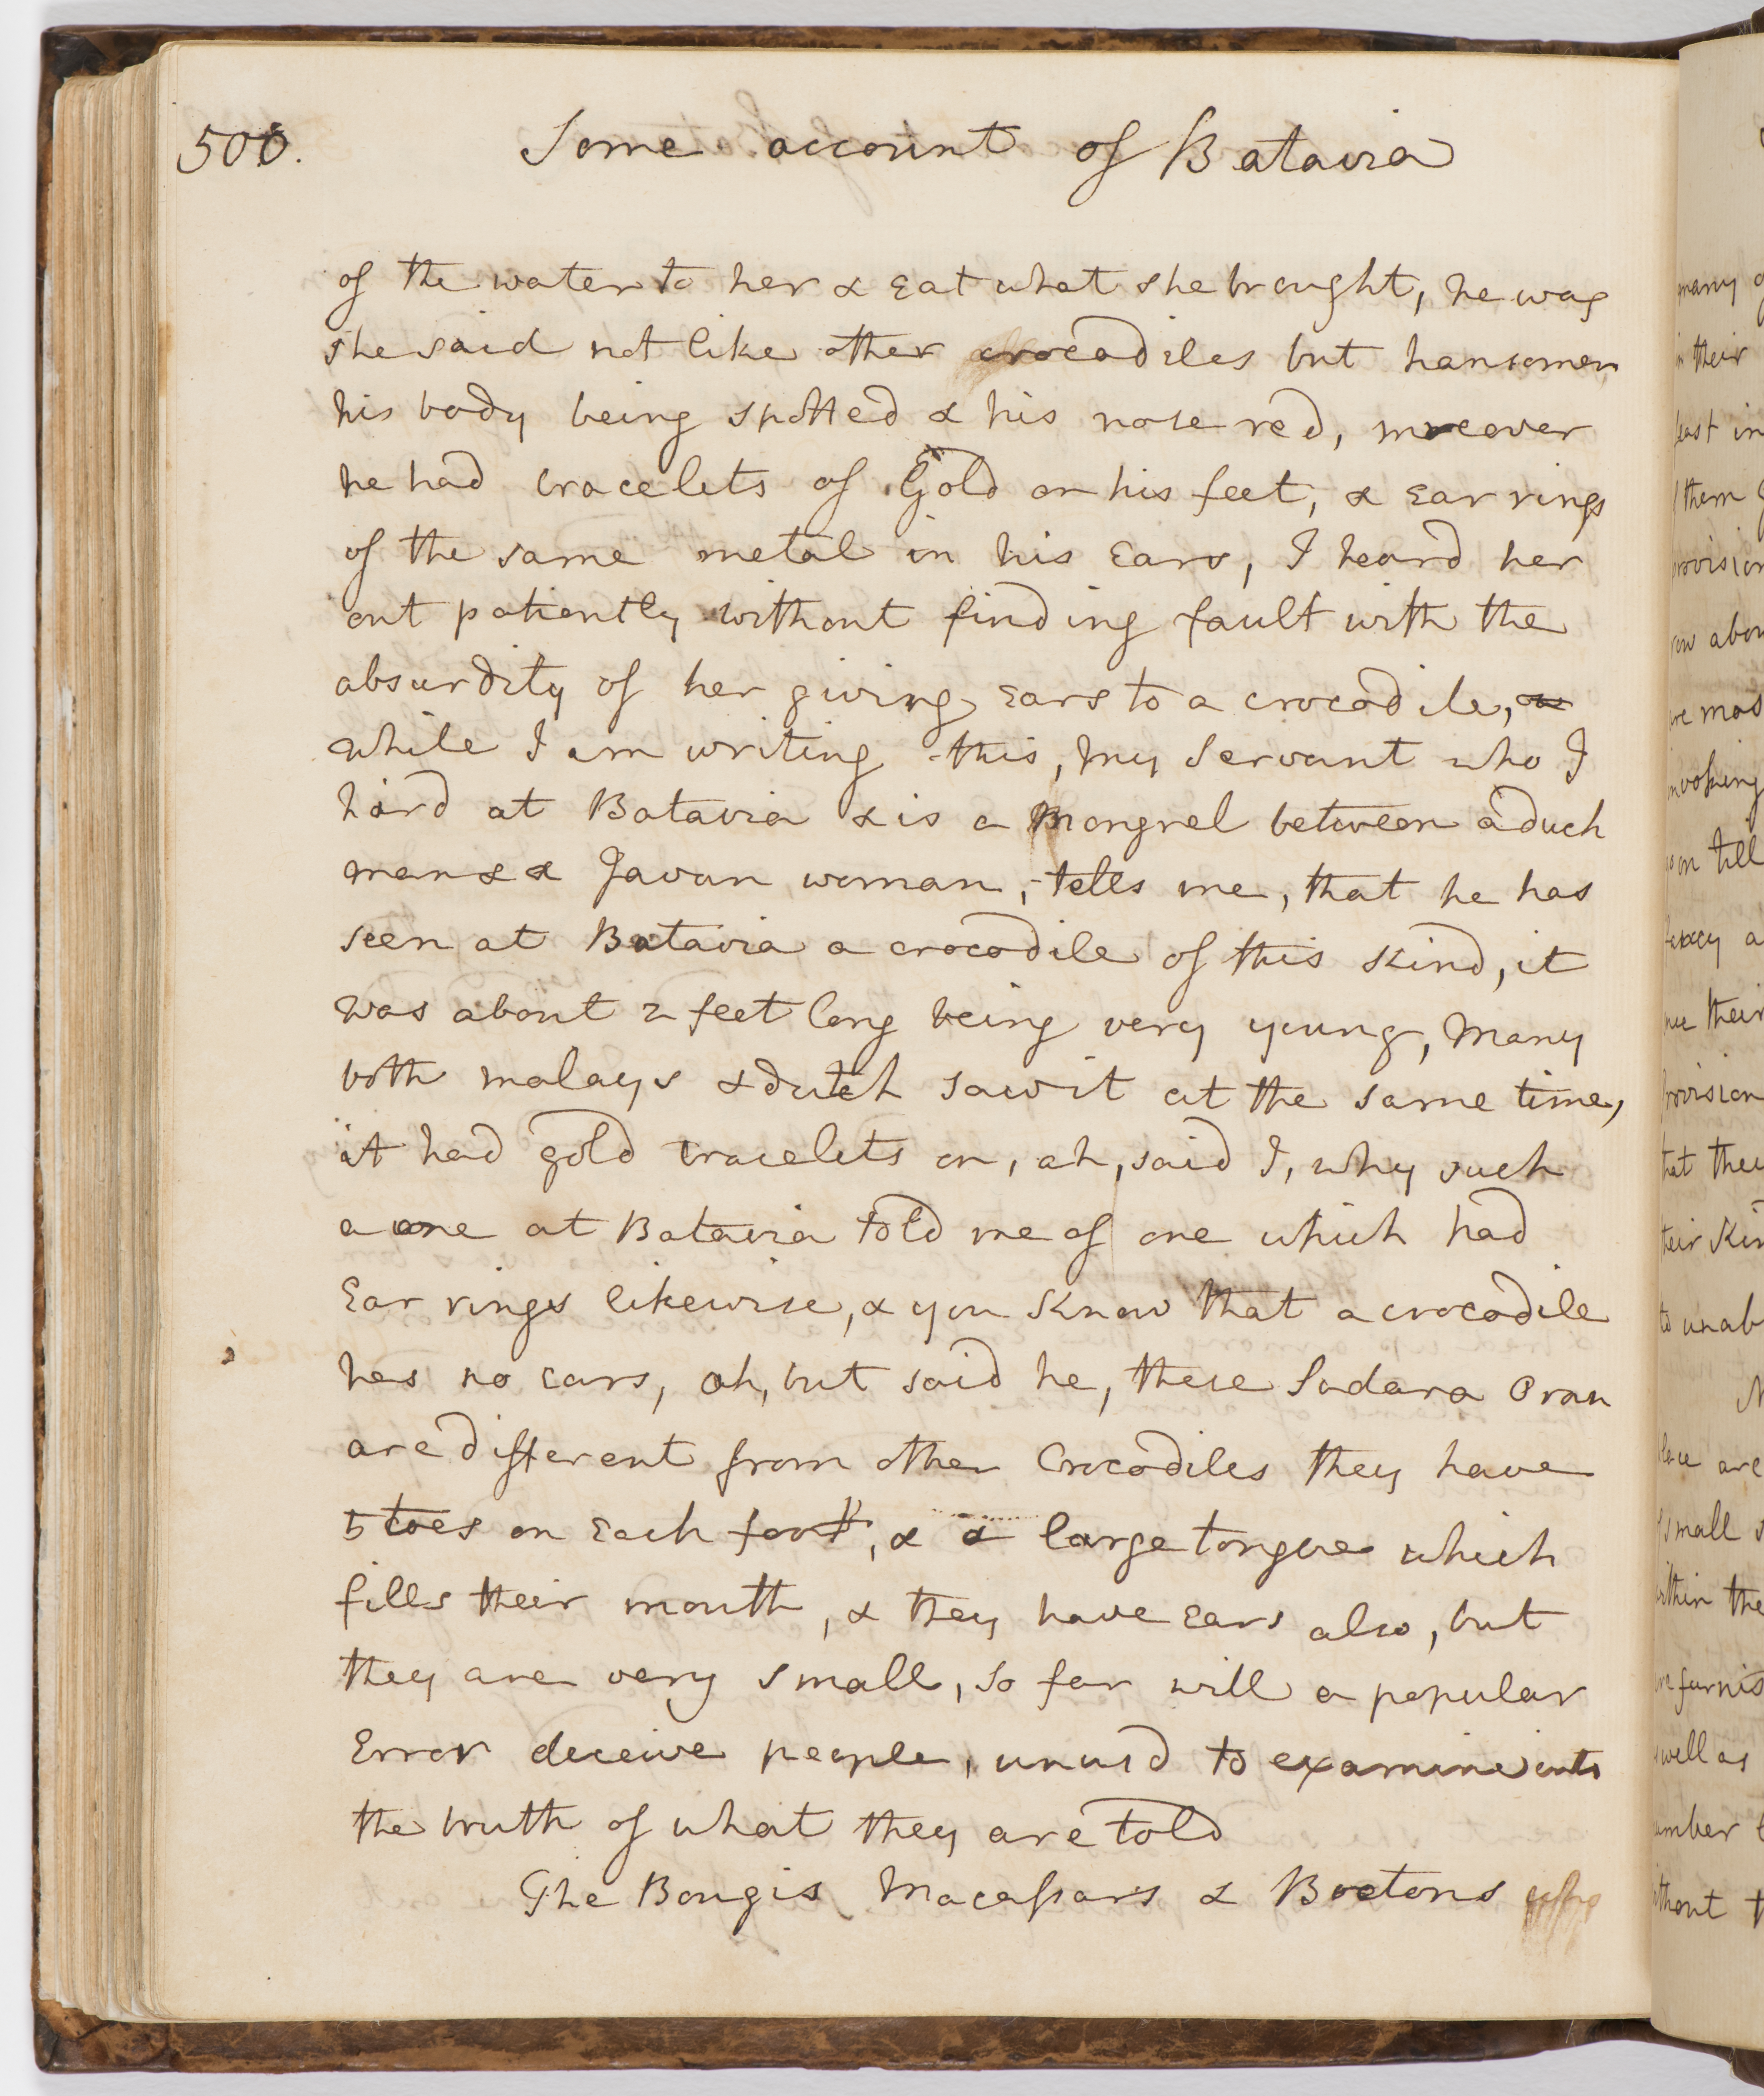 500.
Some account of Batavia
of the water to her & Eat what she brought, he was
she said not like other crocodiles but hansomer
his body being spotted & his nose red, moreover
he had bracelets of Gold on his feet, & Ear rings
of the same metal in his Ears, I heard her
out patiently without finding fault with the
absurdity of her giving Ears to a crocodile,
while I am writing this, my Servant who I
hird at Batavia & is a Mongrel between a duch
man & a Javan woman, tells me, that he has
seen at Batavia a crocodile of this kind, it
was about 2 feet long being very young, Many
both malays & dutch saw it at the same time,
it had gold bracelets on, ah, said I, why such
a one at Batavia told me of one which had
Ear rings likewise, & you Know that a crocodile
has no ears, ah, but said he, these Sudara Oran
are different from other Crocodiles they have
5 toes on Each foot, & a large tongue which
fills their mouth, & they have Ears also, but
they are very small, so far will a popular
Error deceive people, unusd to examine into
the truth of what they are told
The Bougis Macassars & Boetons who
many
their
least in
them
provision
abou
mos
invoking
on till
their
provision
that they
their Kin
to unab
are
small
within the
furnis
well as
number
without